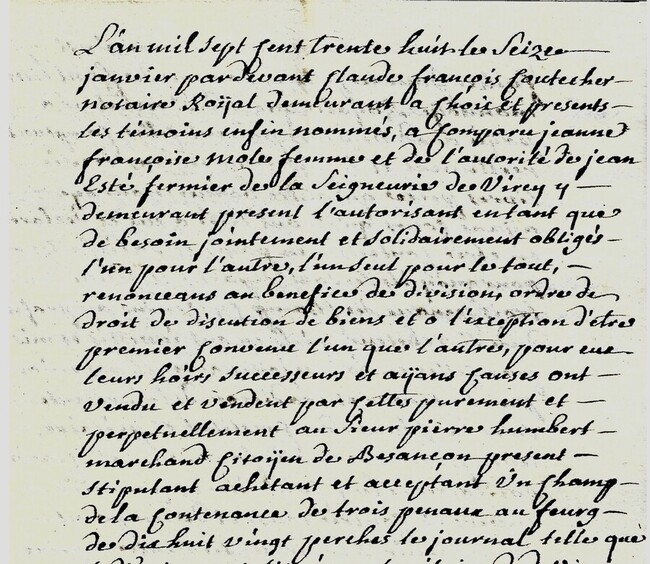 L'an mil sept cent trente huit le seize
janvier pardevant claude françois coutecher
notaire Roÿal demeurant a choie et presents
les témoins enfin nommés, a comparu jeanne
françoise mole femme et de l'autorité de jean
Esté fermier de la seigneurie de Virey y
demeurant present l'autorisant entant que
de besoin jointement et solidairement obligés
l'un pour l'autre, l'un seul pour le tout,
renonceans au benefice de division, ordre de
droit de discution de biens et a l'exception d'être
premier convenu l'un que l'autre, pour eux
leurs hoirs successeurs et aÿans causes ont
vendu et vendent par cettes purement et
perpetuellement au sieur pierre humbert
marchand citoÿen de Besançon present
stipulant achetant et acceptant Un champ
de la contenance de trois penaux au feurg
de dix huit vingt perches le journal telle que